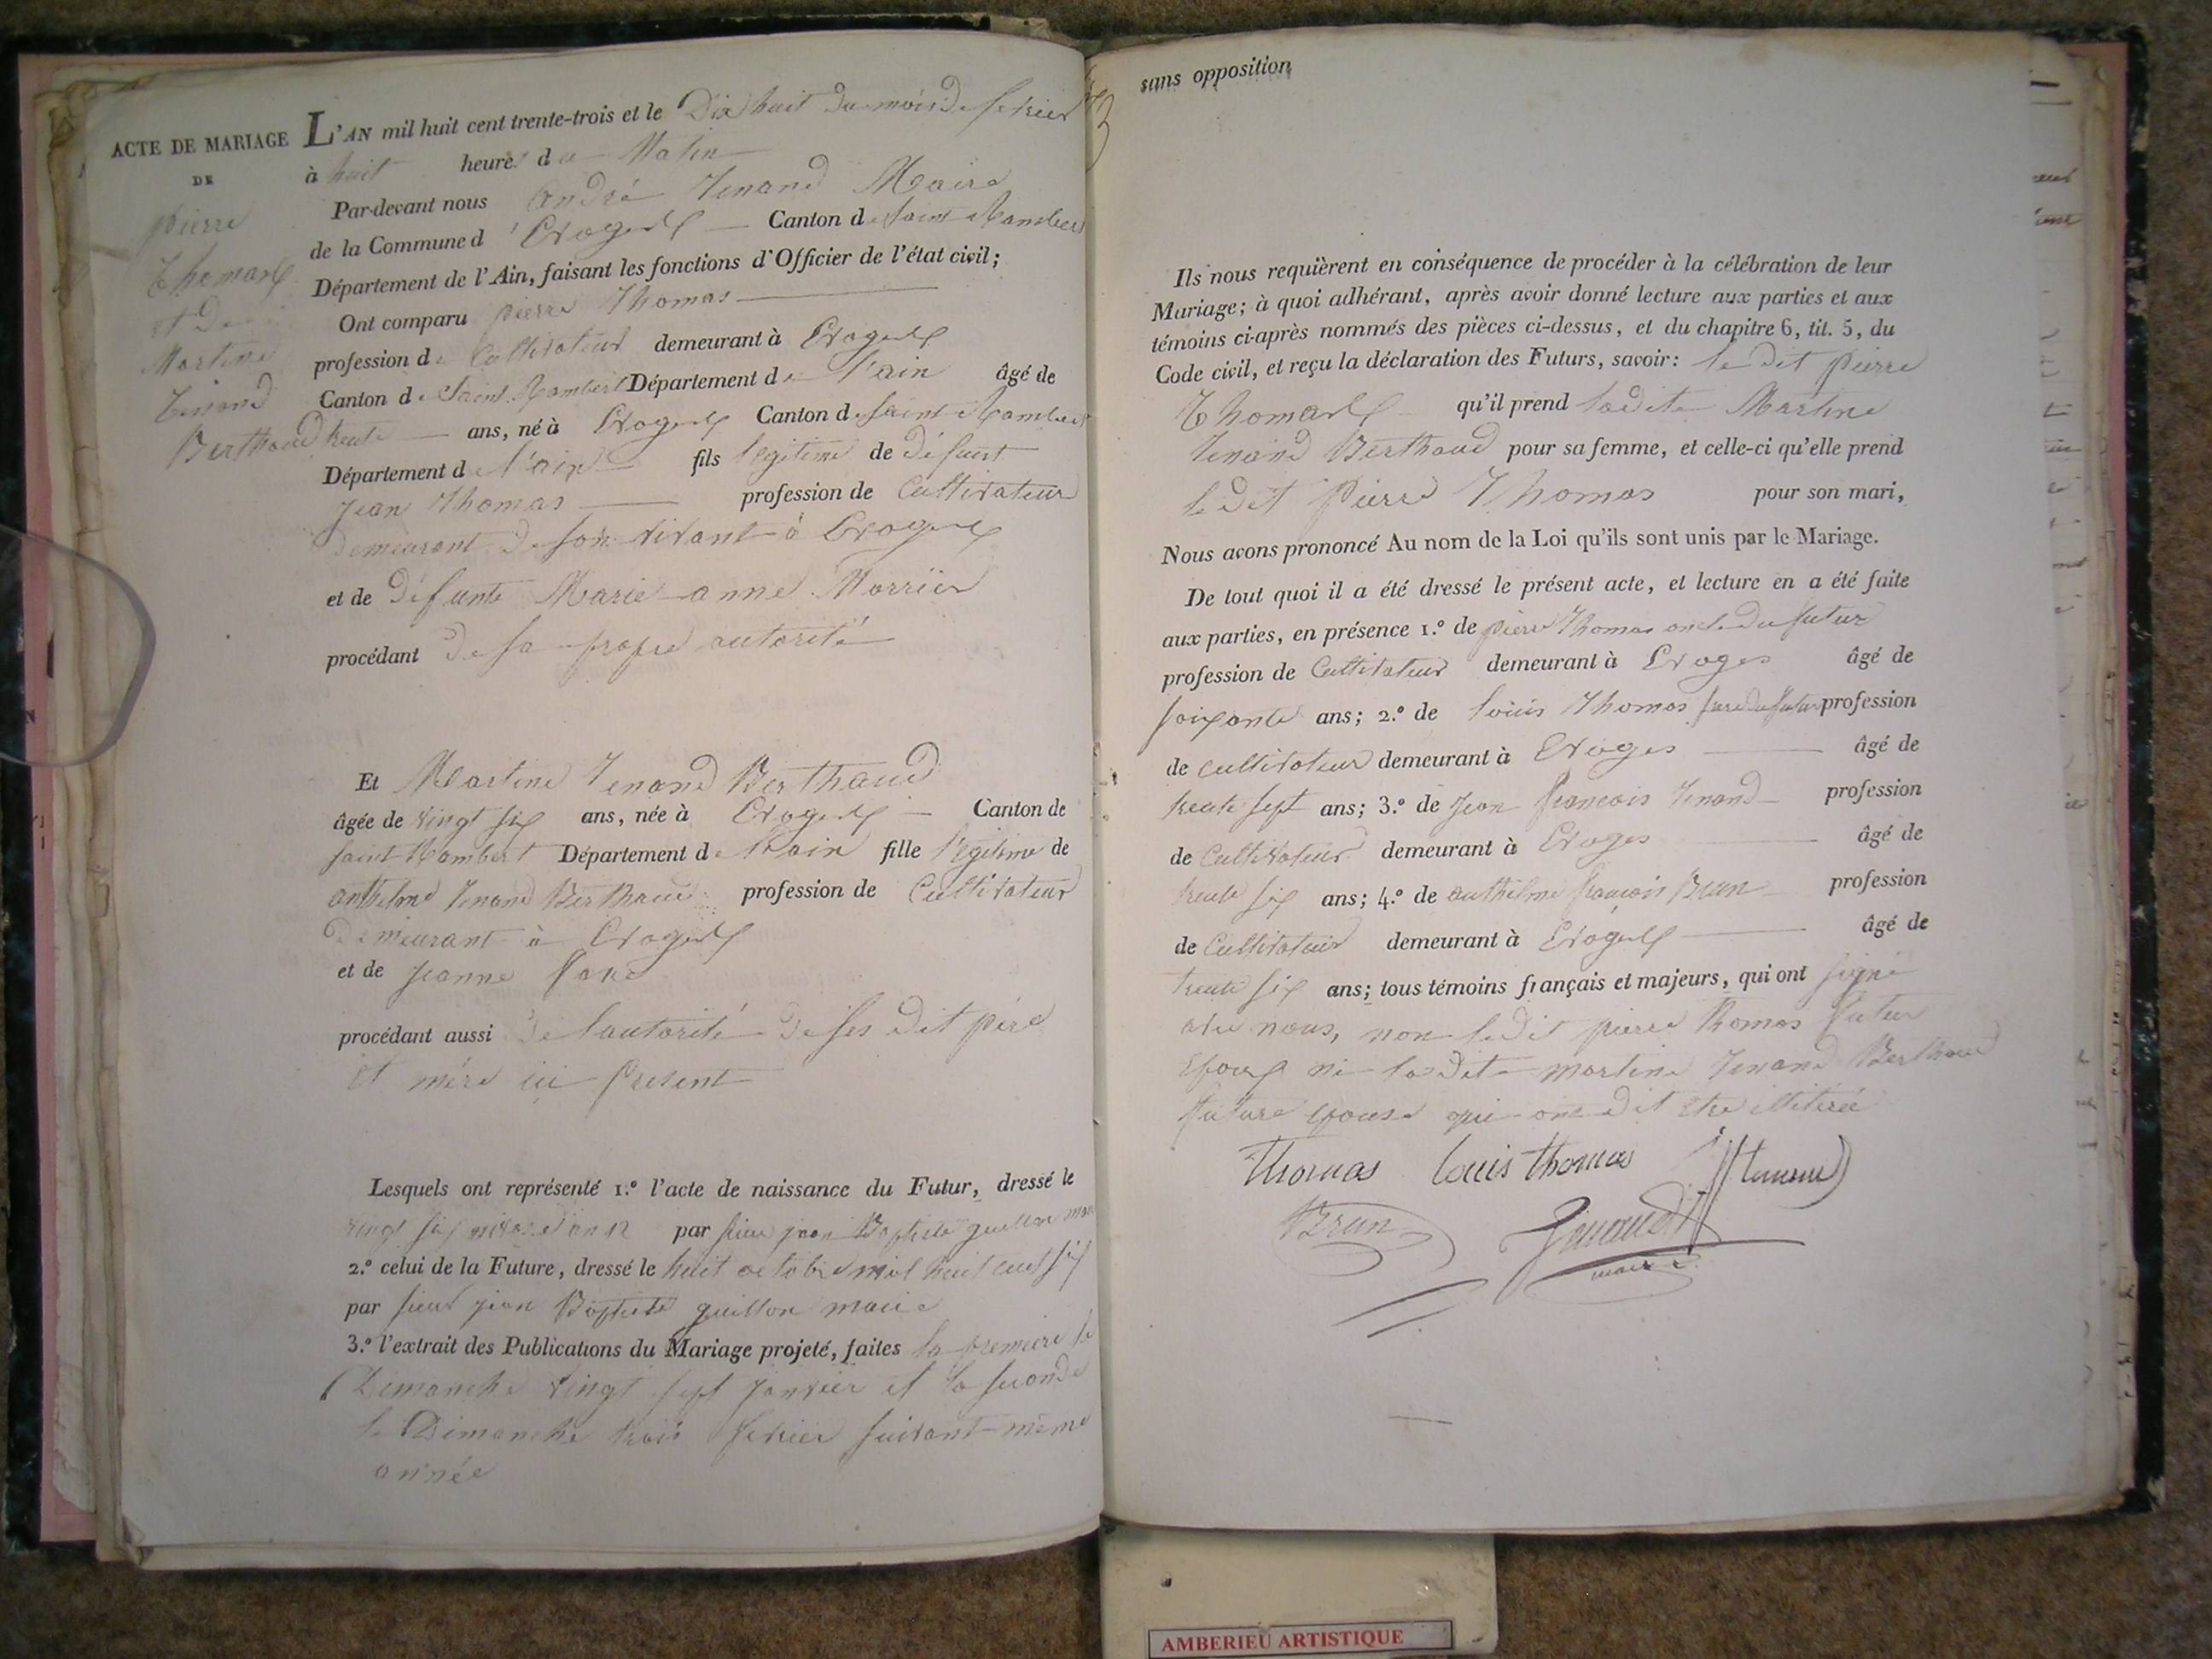 ACTE DE MARIAGE
DE
pierre
Thomas
et De
Martine
Tenand
Berthaud
L'AN mil huit cent trente-trois et le Dix huit du mois de fevrier
à huit heures du Matin
Par-devant nous andré Tenand Maire
de la Commune d'Evoges Canton de Saint Rambert
Département de l'Ain, faisant les fonctions d'Officier de l'état civil;
Ont comparu pierre Thomas
profession de Cultivateur demeurant à Evoges
Canton de Saint Rambert Département de l'ain âgé de
trente ans, né à Evoges Canton de Saint Rambert
Département de l'ain fils légitime de défunt
Jean Thomas profession de Cultivateur
demeurant de son vivant à Evoges
et de défunte Marie anne
procédant de sa propre autorité
Et Martine Tenand Berthaud
âgée de vingt six ans, née à Evoges Canton de
saint Rambert Département de l'ain fille légitime de
anthelme Tenand Berthaud profession de Cultivateur
Demeurant à Evoges
et de jeanne
procédant aussi de l'autorité de ses dit père
et mère ici présent
Lesquels ont représenté 1.º l'acte de naissance du Futur, dressé le
vingt six nivose an 12 par sieur jean Baptiste guillon maire
2.º celui de la Future, dressé le huit octobre mil huit cent six
par sieur jean Baptiste guillon maire
3.º l'extrait des Publications du Mariage projeté, faites la premiere le
Dimanche vingt sept janvier et la seconde
le Dimanche trois fevrier suivant même
année
sans opposition
Ils nous requièrent en conséquence de procéder à la célébration de leur
Mariage; à quoi adhérant, après avoir donné lecture aux parties et aux
témoins ci-après nommés des pièces ci-dessus, et du chapitre 6, tit. 5, du
Code civil, et reçu la déclaration des Futurs, savoir: le dit pierre
Thomas qu'il prend ladite Martine
Tenand Berthaud pour sa femme, et celle-ci qu'elle prend
le dit Pierre Thomas pour son mari,
Nous avons prononcé Au nom de la Loi qu'ils sont unis par le Mariage.
De tout quoi il a été dressé le présent acte, et lecture en a été faite
aux parties, en présence 1.º de pierre Thomas oncle du futur
profession de Cultivateur demeurant à Evoges âgé de
soixante ans; 2.º de louis Thomas frere du futur profession
de cultivateur demeurant à Evoges âgé de
trente sept ans; 3.º de Jean francois Tenand profession
de Cultivateur demeurant à Evoges âgé de
trente six ans; 4.º de anthelme francois Brun profession
de Cultivateur demeurant à Evoges âgé de
trente six ans; tous témoins français et majeurs, qui ont signé
avec nous, non le dit pierre thomas futur
Epoux ni la dite martine Tenand Berthaud
future epouse qui ont dit etre illitéré
Thomas louis thomas
Brun Tenand
maire
AMBERIEU ARTISTIQUE